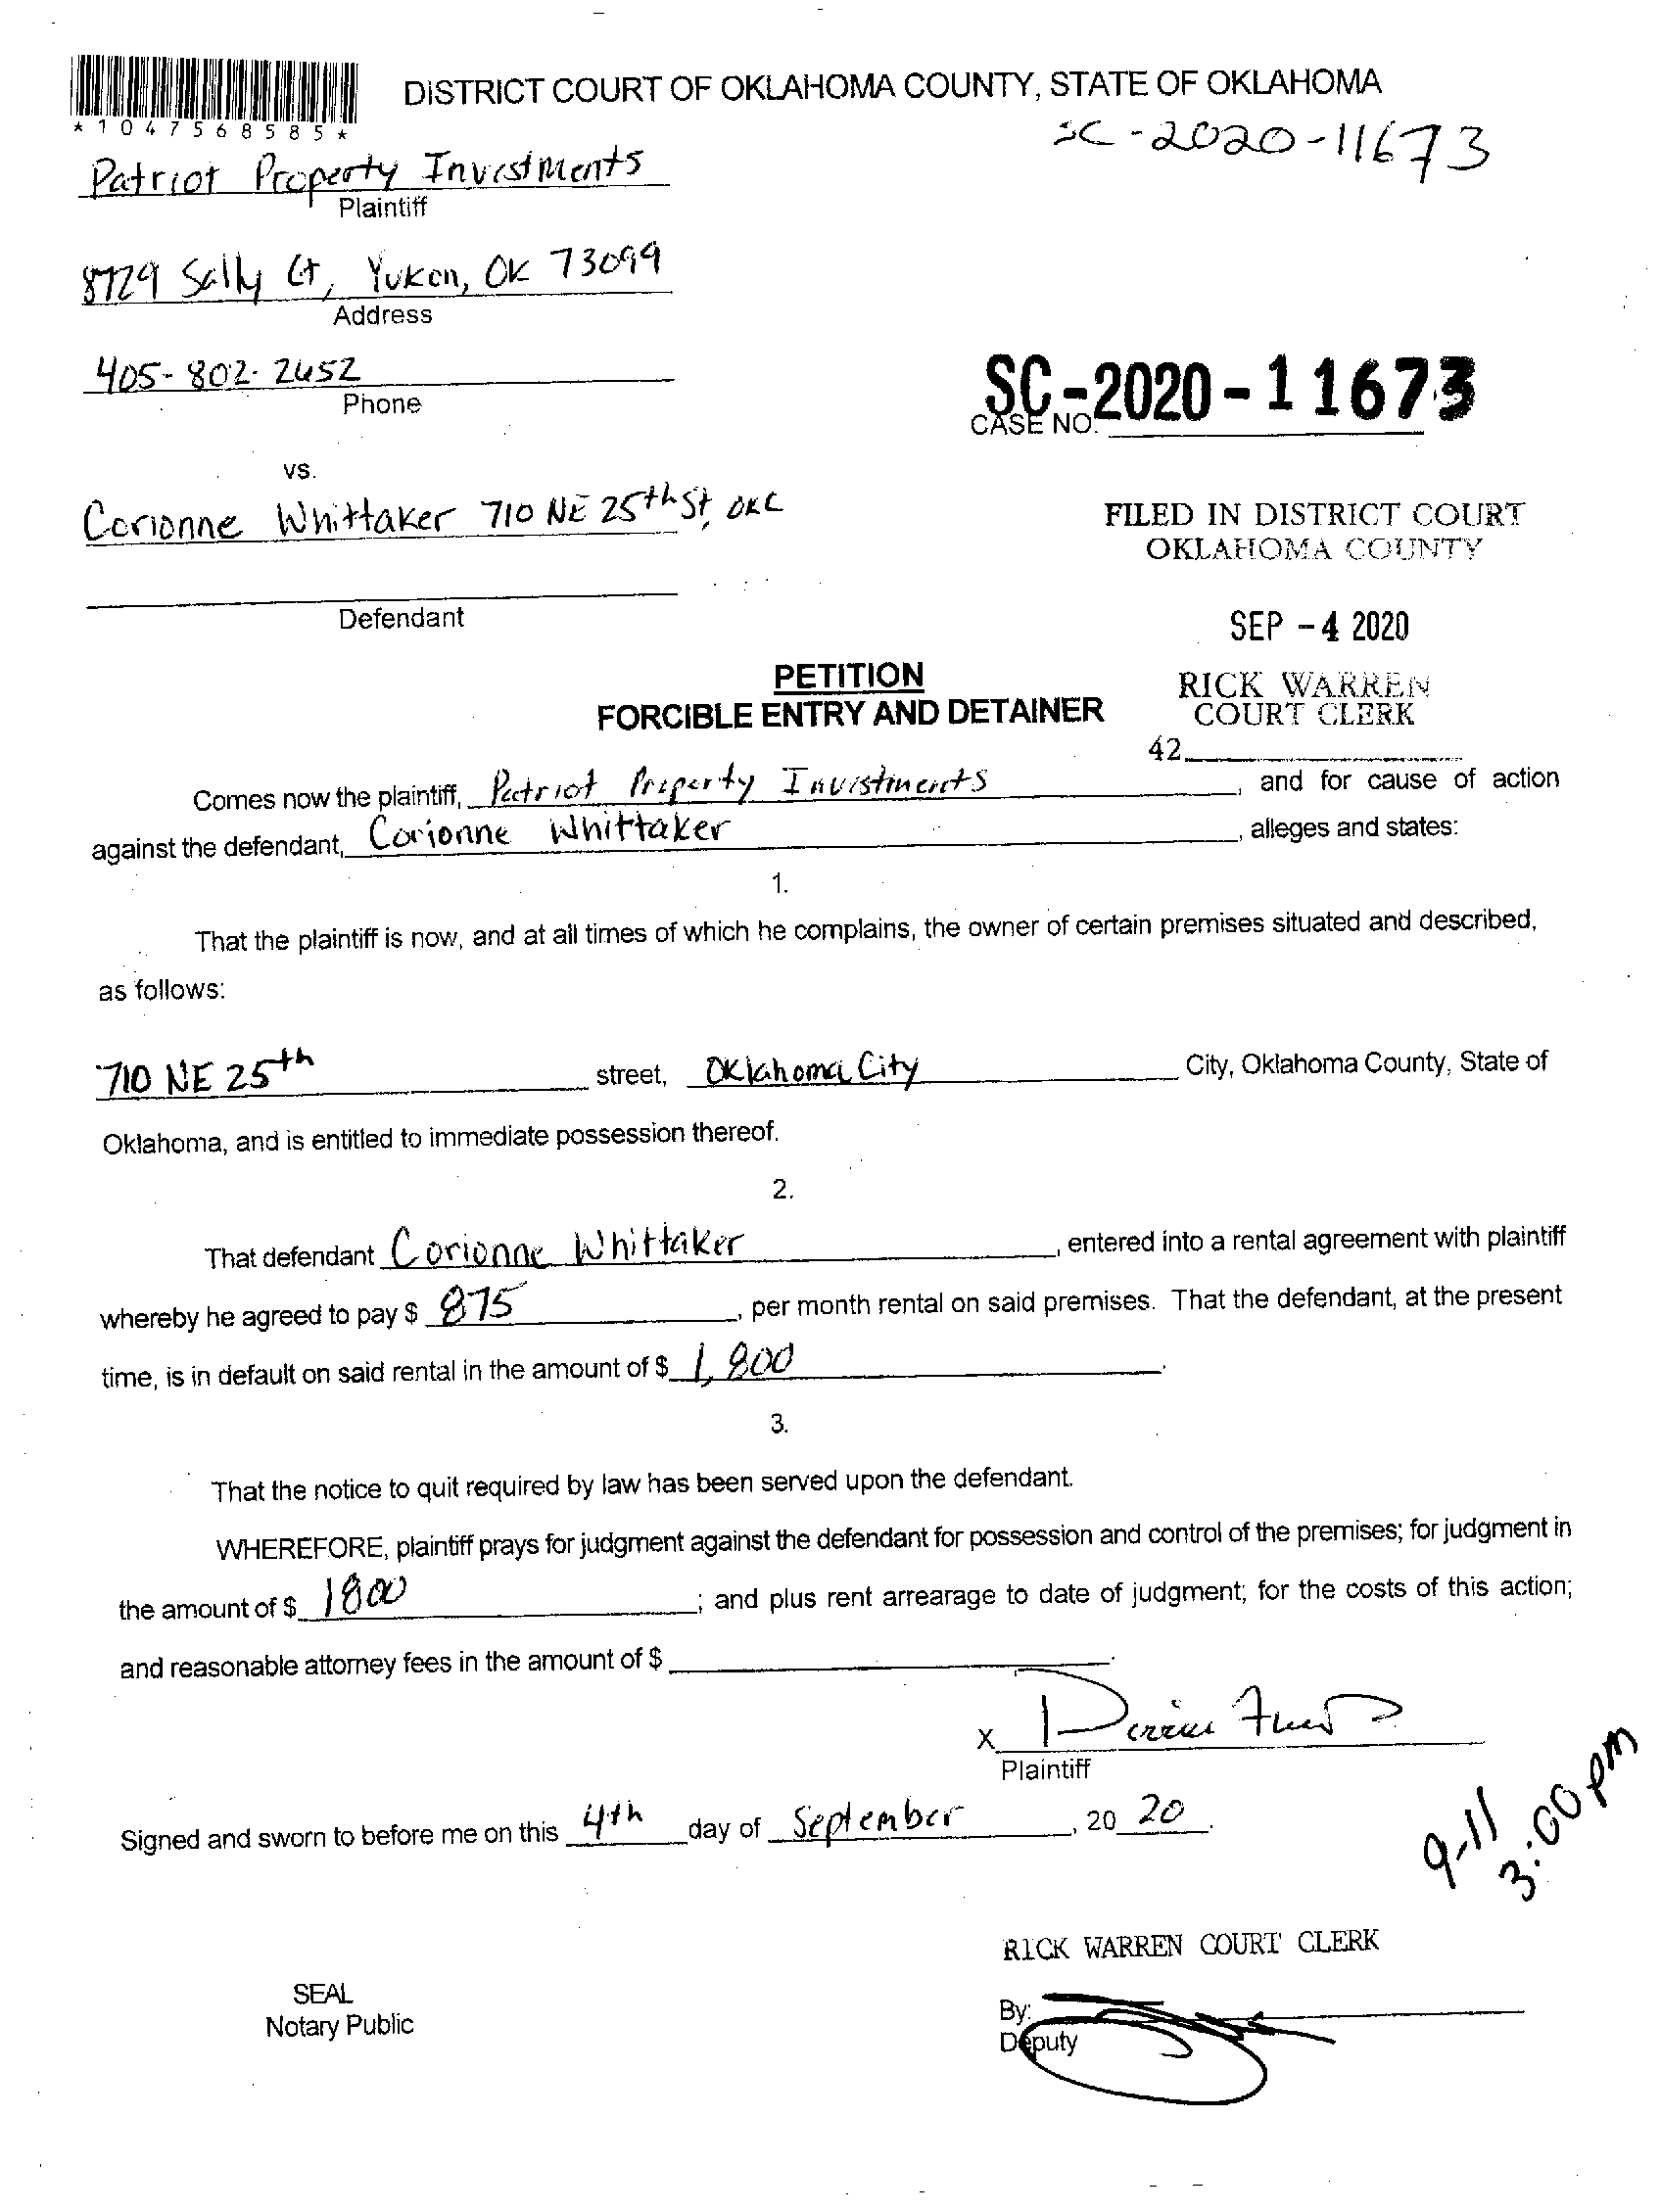 DISTRICT COURT OF OKLAHOMA COUNTY, STATE OF OKLAHOMA
*1047568585*
SC-2020-11673
Patriot Property Investments
Plaintiff
8729 Sally Ct, Yukon, OK 73099
Address
405-802-2652
Phone
SC-2020-11673
CASE NO.
vs.
Corionne Whittaker 710 NE 25th St, OKC
FILED IN DISTRICT COURT
OKLAHOMA COUNTY
Defendant
SEP -4 2020
PETITION
FORCIBLE ENTRY AND DETAINER
RICK WARREN
COURT CLERK
42
Comes now the plaintiff, Patriot Property Investments, and for cause of action
against the defendant, Corionne Whittaker, alleges and states:
1.
That the plaintiff is now, and at all times of which he complains, the owner of certain premises situated and described,
as follows:
710 NE 25th street, Oklahoma City City, Oklahoma County, State of
Oklahoma, and is entitled to immediate possession thereof.
2.
That defendant Corionne Whittaker, entered into a rental agreement with plaintiff
whereby he agreed to pay $ 875, per month rental on said premises. That the defendant, at the present
time, is in default on said rental in the amount of $ 1,800.
3.
That the notice to quit required by law has been served upon the defendant.
WHEREFORE, plaintiff prays for judgment against the defendant for possession and control of the premises; for judgment in
the amount of $ 1800; and plus rent arrearage to date of judgment; for the costs of this action;
and reasonable attorney fees in the amount of $ .
X
Plaintiff
Signed and sworn to before me on this 4th day of September, 20 20.
9-11
3:00 pm
RICK WARREN COURT CLERK
SEAL
Notary Public
By:
Deputy